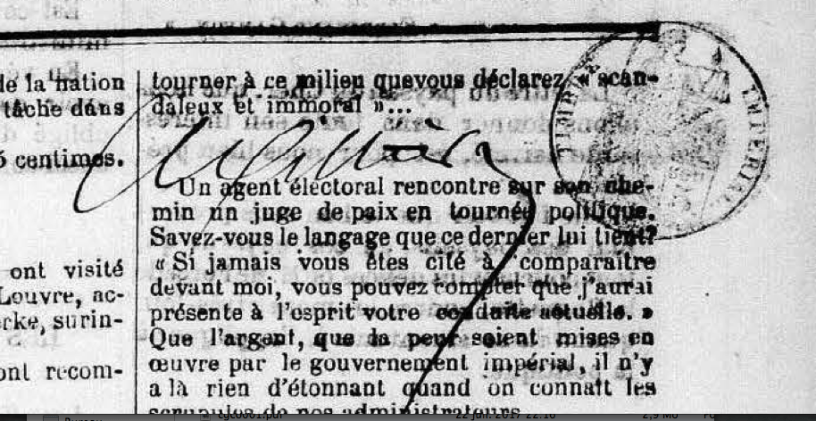 de la nation
tâche dans
centimes.
ont visité
Louvre, ac-
erke, surin-
ont recom-
tourner à ce milieu que vous déclarez « scan-
daleux et immoral »...
Un agent électoral rencontre sur son che-
min un juge de paix en tournée politique.
Savez-vous le langage que ce dernier lui tient?
« Si jamais vous êtes cité à comparaître
devant moi, vous pouvez compter que j'aurai
présente à l'esprit votre conduite actuelle. »
Que l'argent, que la peur soient mises en
œuvre par le gouvernement impérial, il n'y
a là rien d'étonnant quand on connaît les
scrupules de nos administrateurs
TIMBRE IMPERIAL
22 juil. 2017 22:10